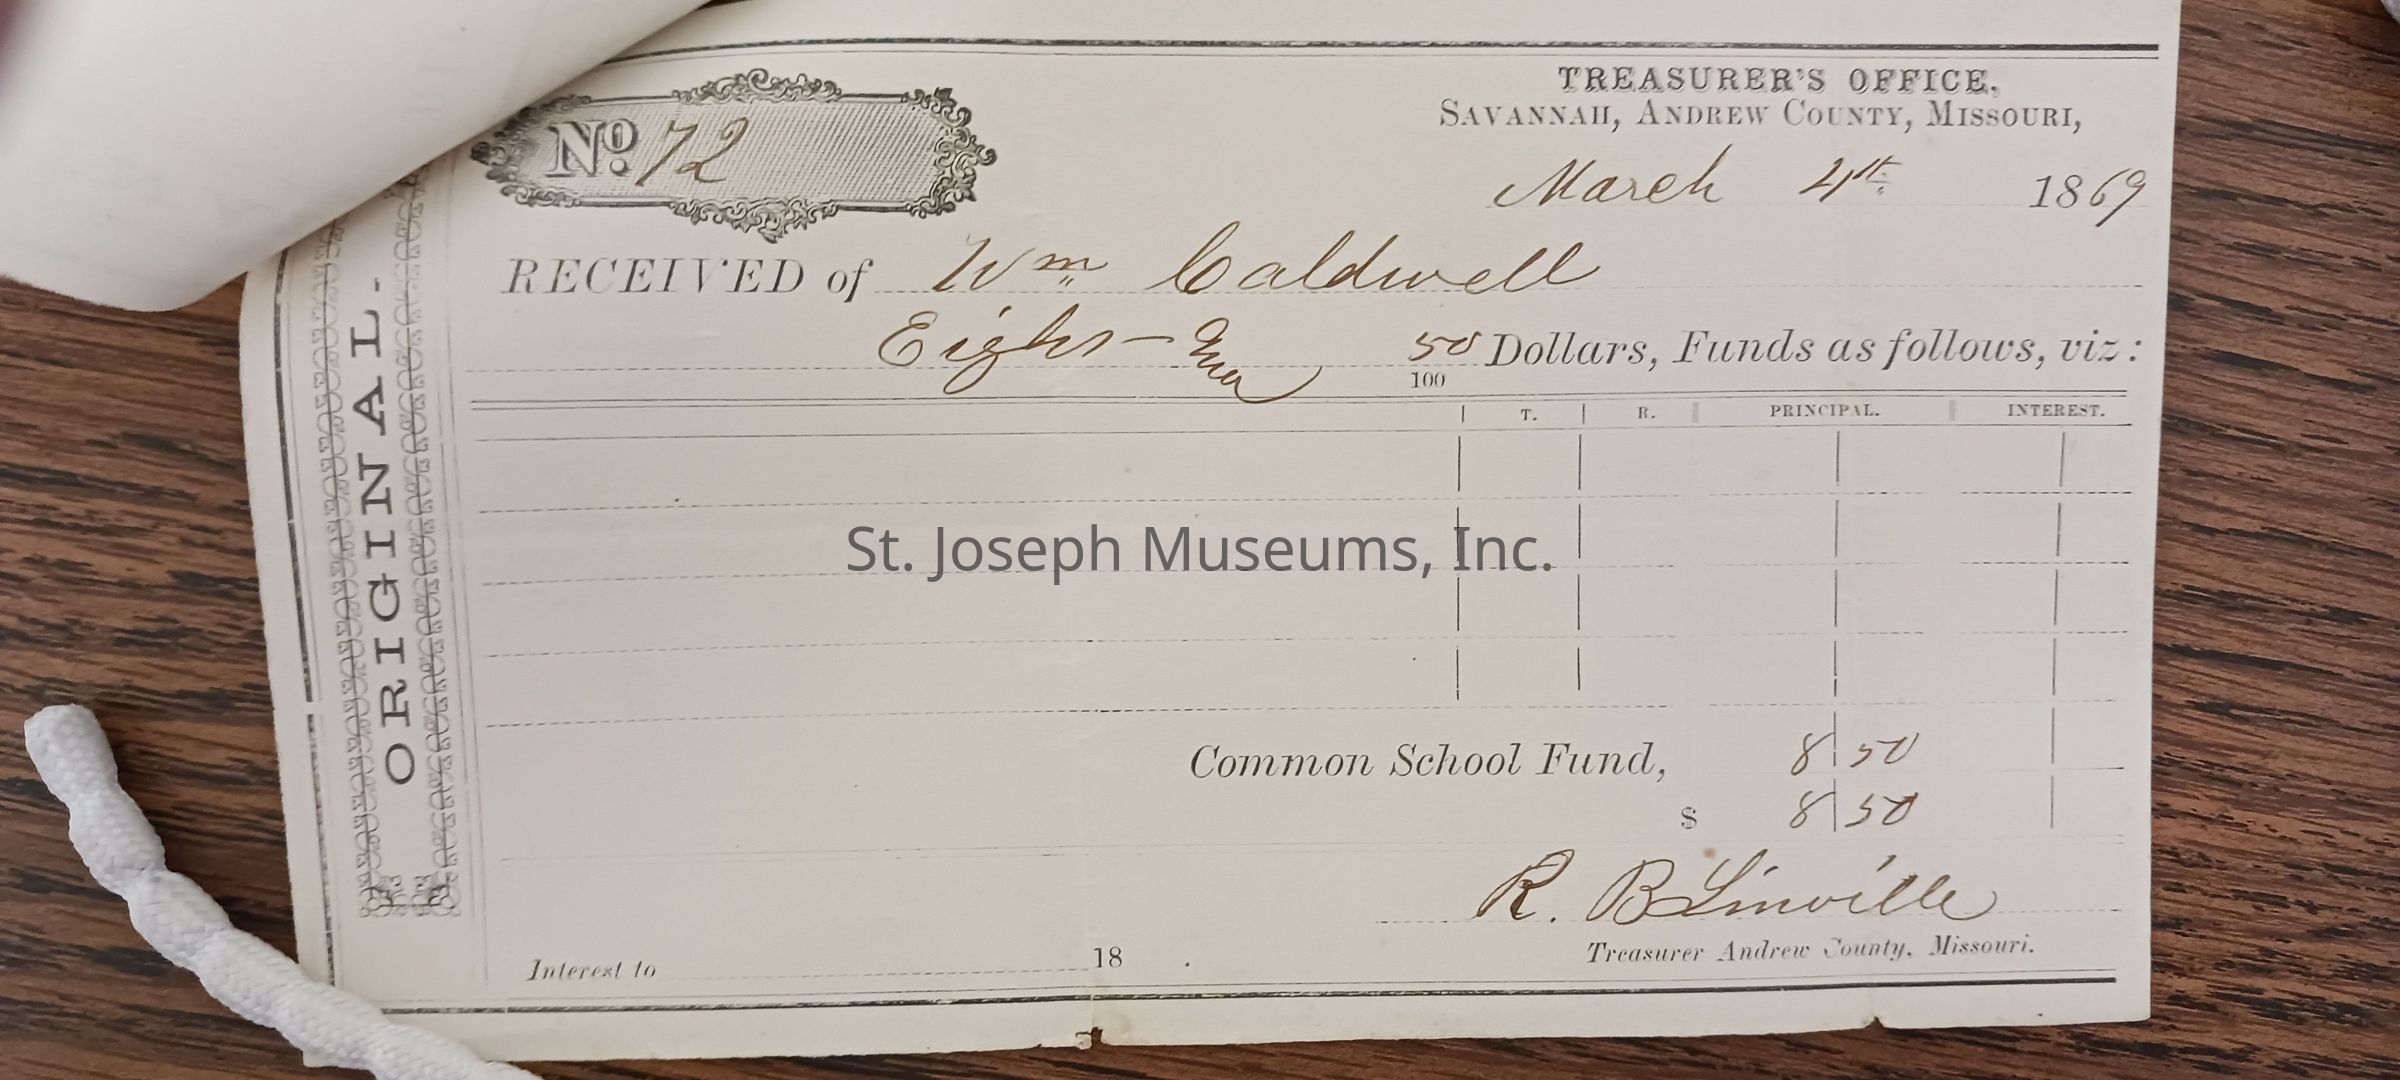 TREASURER'S OFFICE,
SAVANNAH, ANDREW COUNTY, MISSOURI,
No. 72
March 4th 1869
RECEIVED of Wm Caldwell
Eight 50/100 Dollars, Funds as follows, viz:
T. R. PRINCIPAL. INTEREST.
St. Joseph Museums, Inc.
Common School Fund, 8 50
$ 8 50
R. B Linville
Treasurer Andrew County, Missouri.
Interest to 18 .
ORIGINAL.